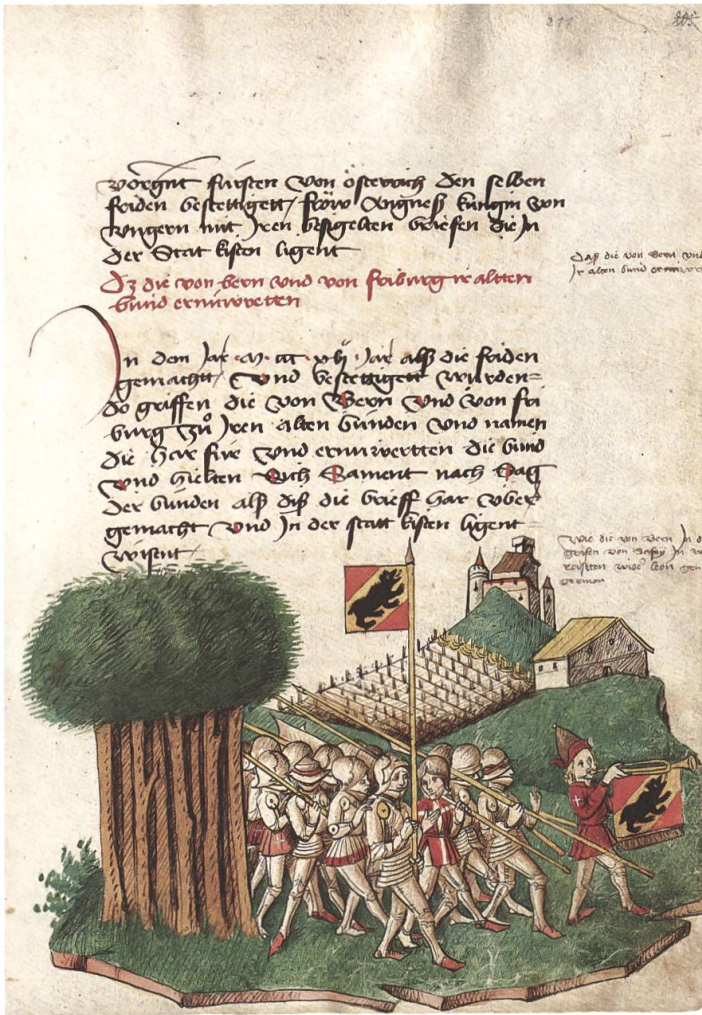 211
vorgnt fürsten von österrich den selben
friden bestettigett / fröw Angnesß küngin von
vngern mit Jren besigelten briefen die Jn
der Statt kisten ligent
Dz die von bern vnd von friburg ir altten
bund ernüwreten
Jn dem Jar Jar alß die friden
gemachtt / Vnd bestettigett wurden
do griffen die von Bern Vnd von fri
burg zů Jren alten bünden vnd namen
die har für vnd ernüwertten die bünd
vnd hielten nach sag
der bünden alß diß die brieff har vber
gemacht vnd Jn der statt kisten ligent
wisent
Daß die von Bern vnd
Jr alten bund
Wie die von Bern Jn d
grafen von Safoy Jn
reisetten